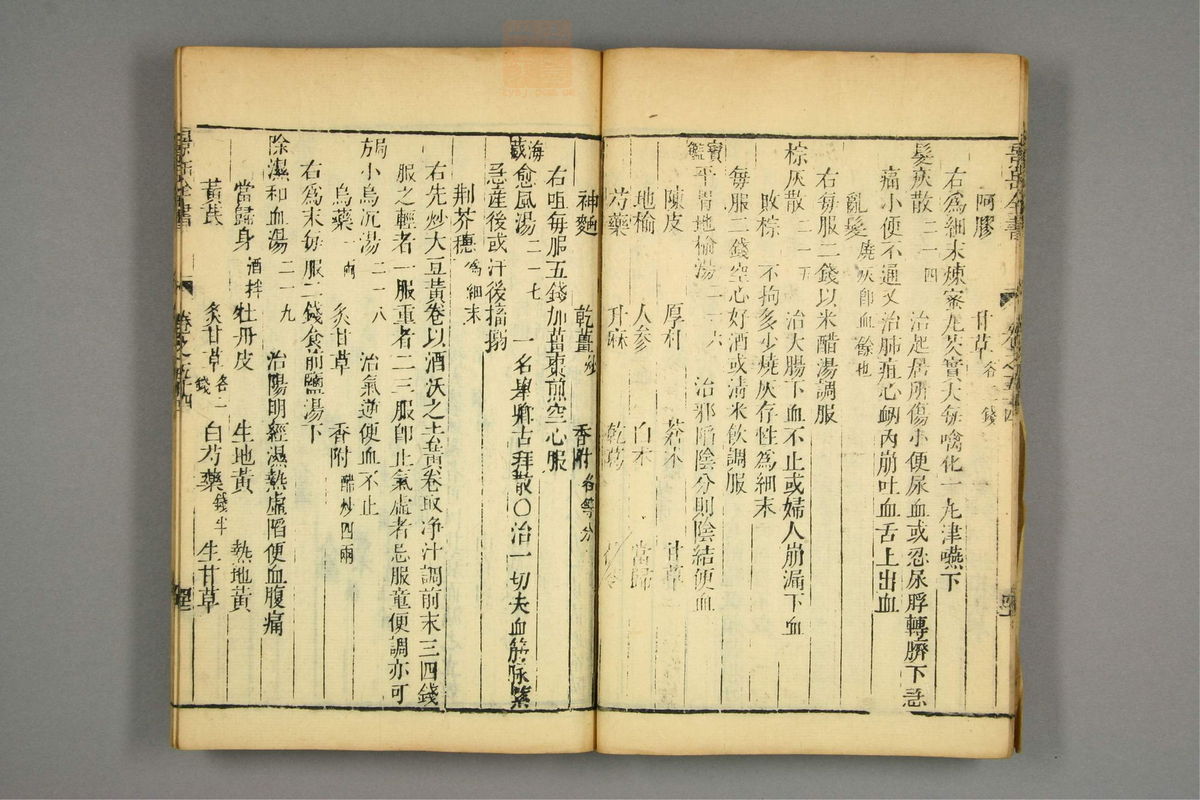 阿膠 甘草各一錢
右為細末煉蜜丸芡實大每噙化一丸津嚥下
髮灰散二一四 治起居所傷小便尿血或忍尿脬轉臍下急
痛小便不通又治肺疽心衂內崩吐血舌上出血
亂髮燒灰即血餘也
右每服二錢以米醋湯調服
棕灰散二一五 治大腸下血不止或婦人崩漏下血
敗棕 不拘多少燒灰存性為細末
每服二錢空心好酒或清米飲調服
寶鑑平胃地榆湯二一六 治邪陷陰分則陰結便血
陳皮 厚朴 蒼朮 甘草
地榆 人參 白朮 當歸
芍藥 升麻 乾葛 茯苓
神麯 乾薑炒 香附各等分
右㕮咀每服五錢加薑棗煎空心服
海藏愈風湯二一七 一名舉卿古拜散〇治一切失血筋脉緊
急產後或汗後搐搦
荆芥穗為細末
右先炒大豆黃卷以酒沃之去黃卷取净汁調前末三四錢
服之輕者一服重者二三服即止氣虛者忌服童便調亦可
局方小烏沉湯二一八 治氣逆便血不止
烏藥一兩 炙甘草 香附醋炒四兩
右為末每服二錢食前鹽湯下
除濕和血湯二一九 治陽明經濕熱虛陷便血腹痛
當歸身酒拌 牡丹皮 生地黃 熟地黃
黃芪 炙甘草各一錢 白芍藥錢半 生甘草